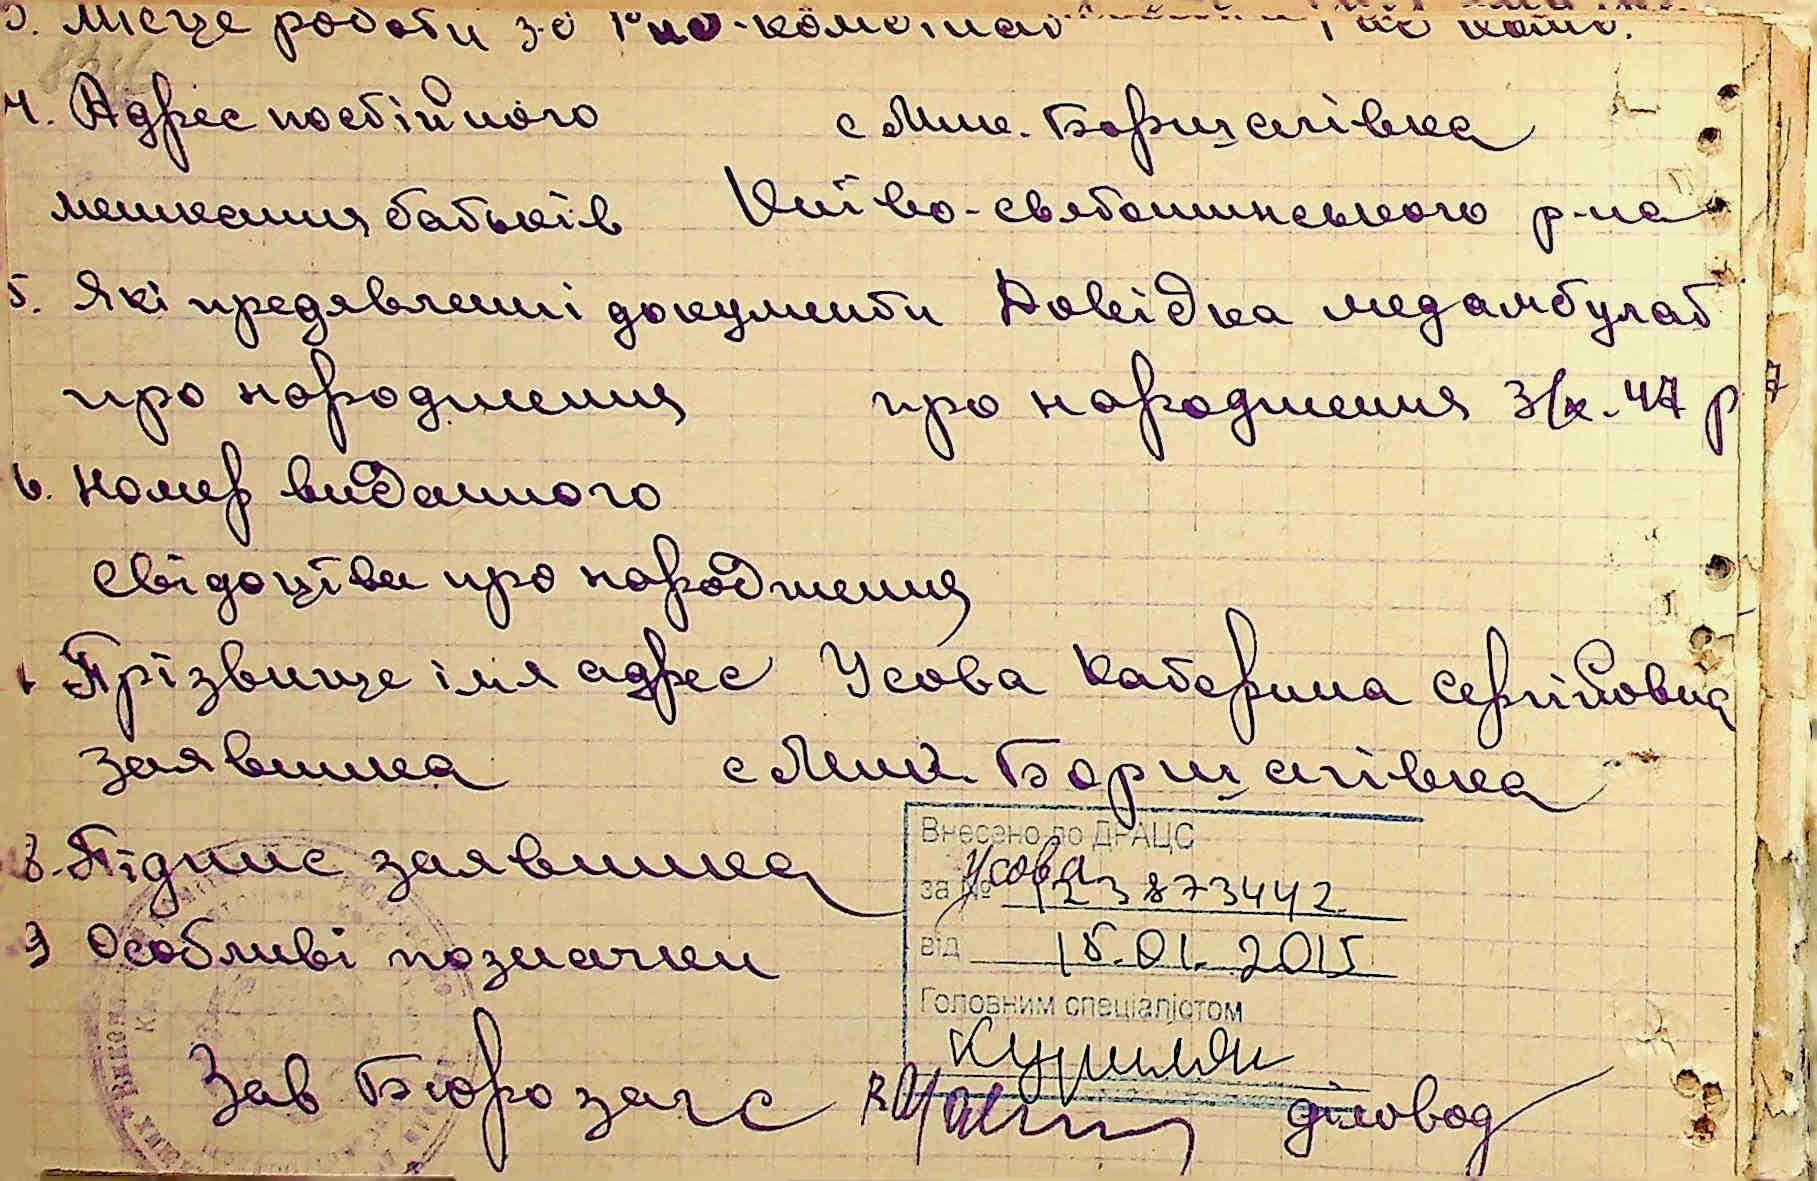 3. Місце роботи
4. Адрес постійного с Мик. Борщагівка
мешкання батьків Києво-святошинського р-на
5. Які предявленні документи Довідка медамбулат
про народження про народження 3/х. 47 р
6. Номер виданного
свідоцтва про народження
Прізвище імя адрес Усова Катерина Сергійовна
заявника с Мик. Борщагівка
8. Підпис заявника Усова
9 Особливі позначки
Внесено до ДРАЦС
за № 123873442
від 15.01.2015
Головним спеціалістом
Зав Бюро загс діловод